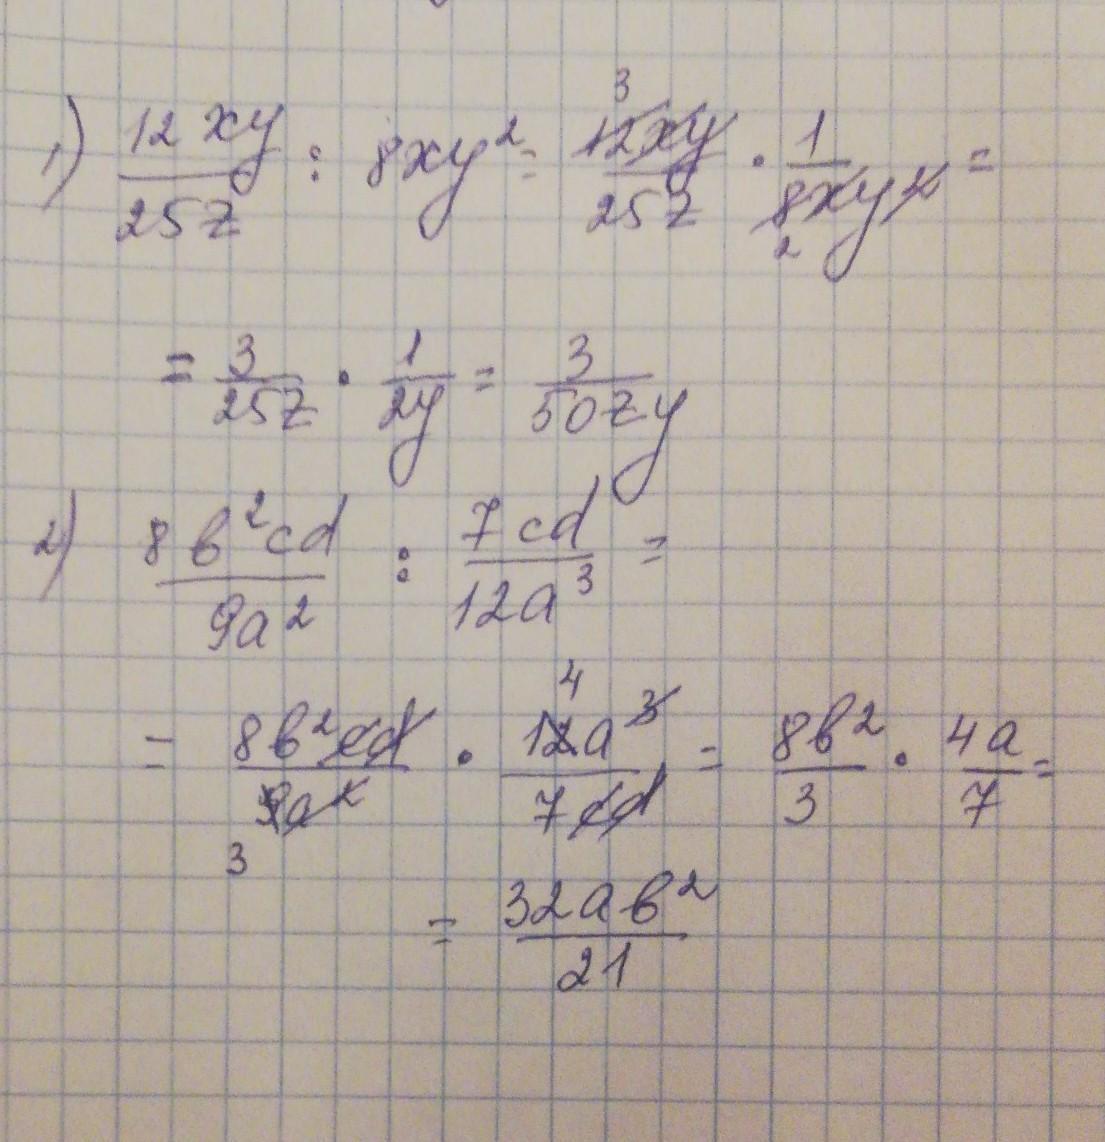 1) 12xy/25z : 8xy² = 12xy/25z · 1/8xy² =
3
2
= 3/25z · 1/2y = 3/50zy
2) 8b²cd/9a² : 7cd/12a³ =
4
= 8b²cd/9a² · 12a³/7cd = 8b²/3 · 4a/7 =
3
= 32ab²/21